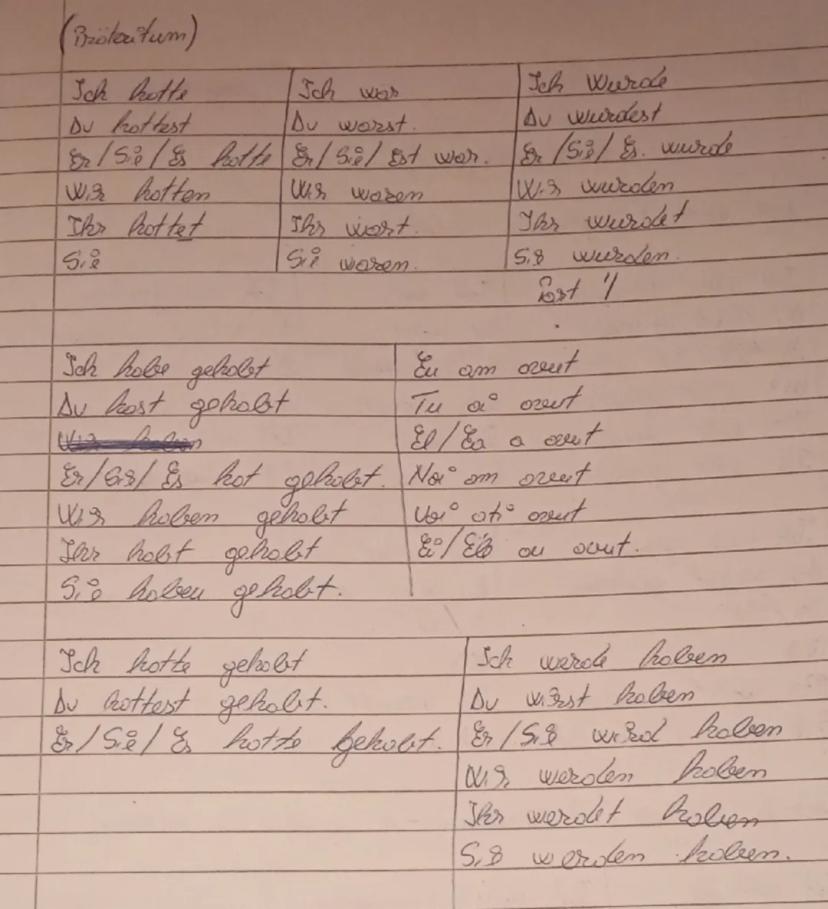 (Präteritum)
Ich hatte | Ich war | Ich wurde
Du hattest | Du warst. | Du wurdest
Er/Sie/Es hatte | Er/Sie/Est war. | Er/Sie/Es. wurde
Wir hatten | Wir waren | Wir wurden
Ihr hattet | Ihr wart. | Ihr wurdet
Sie | Sie waren. | Sie wurden.
Ich habe gehabt | Eu am avut
Du hast gehabt | Tu ai avut
Er/Sie/Es hat gehabt. | El/Ea a avut
Wir haben gehabt | Noi am avut
Ihr habt gehabt | Voi ați avut
Sie haben gehabt. | Ei/Ele au avut.
Ich hatte gehabt | Ich werde haben
Du hattest gehabt. | Du wirst haben
Er/Sie/Es hatte gehabt. | Er/Sie wird haben
Wir werden haben
Ihr werdet haben
Sie werden haben.